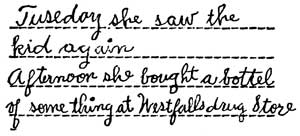 Tuseday she saw the
kid again
Afternoon she bought a bottel
of some thing at Westfalls drug Store